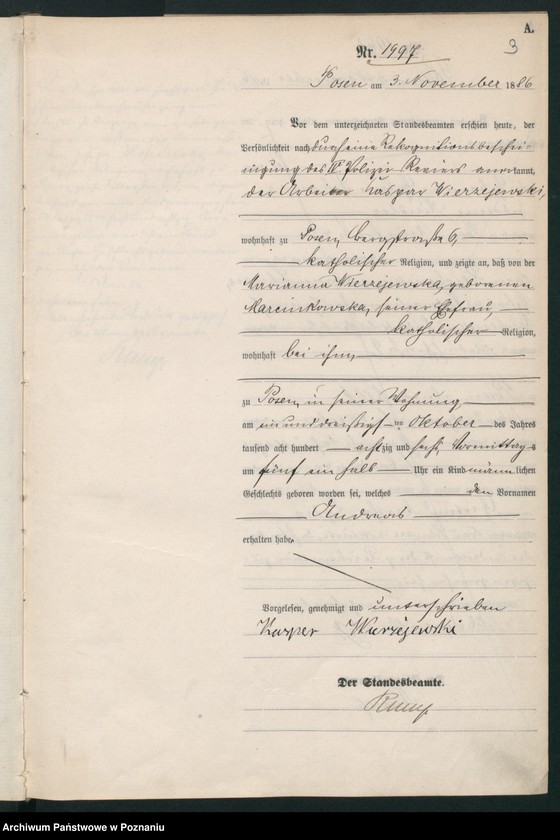 A.
3
Nr. 1997
Posen am 3. November 1886
Vor dem unterzeichneten Standesbeamten erschien heute, der
Persönlichkeit nach durch eine Rekognitionsbeschei-
nigung des IV. Polizei Reviers anerkannt,
der Arbeiter Kaspar Wierzejewski,
wohnhaft zu Posen, Bergstraße 6,
katholischer Religion, und zeigte an, daß von der
Marianna Wierzejewska, geborenen
Marcinkowska, seiner Ehefrau,
katholischer Religion,
wohnhaft bei ihm,
zu Posen, in seiner Wohnung
am einunddreißigsten Oktober des Jahres
tausend acht hundert achtzig und sechs, Vormittags
um fünf ein halb Uhr ein Kind männlichen
Geschlechts geboren worden sei, welches den Vornamen
Andreas
erhalten habe.
Vorgelesen, genehmigt und unterschrieben
Kasper Wierzejewski
Der Standesbeamte.
Archiwum Państwowe w Poznaniu